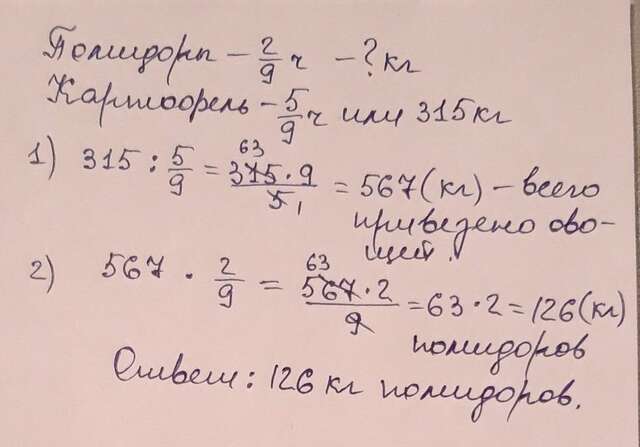 Помидоры – 2/9 ч – ? кг
Картофель – 5/9 ч или 315 кг
1) 315 : 5/9 = 315 · 9 / 5 = 567 (кг) – всего
63
1
приведено ово-
щей.
2) 567 · 2/9 = 567 · 2 / 9 = 63 · 2 = 126 (кг)
63
помидоров
Ответ: 126 кг помидоров.